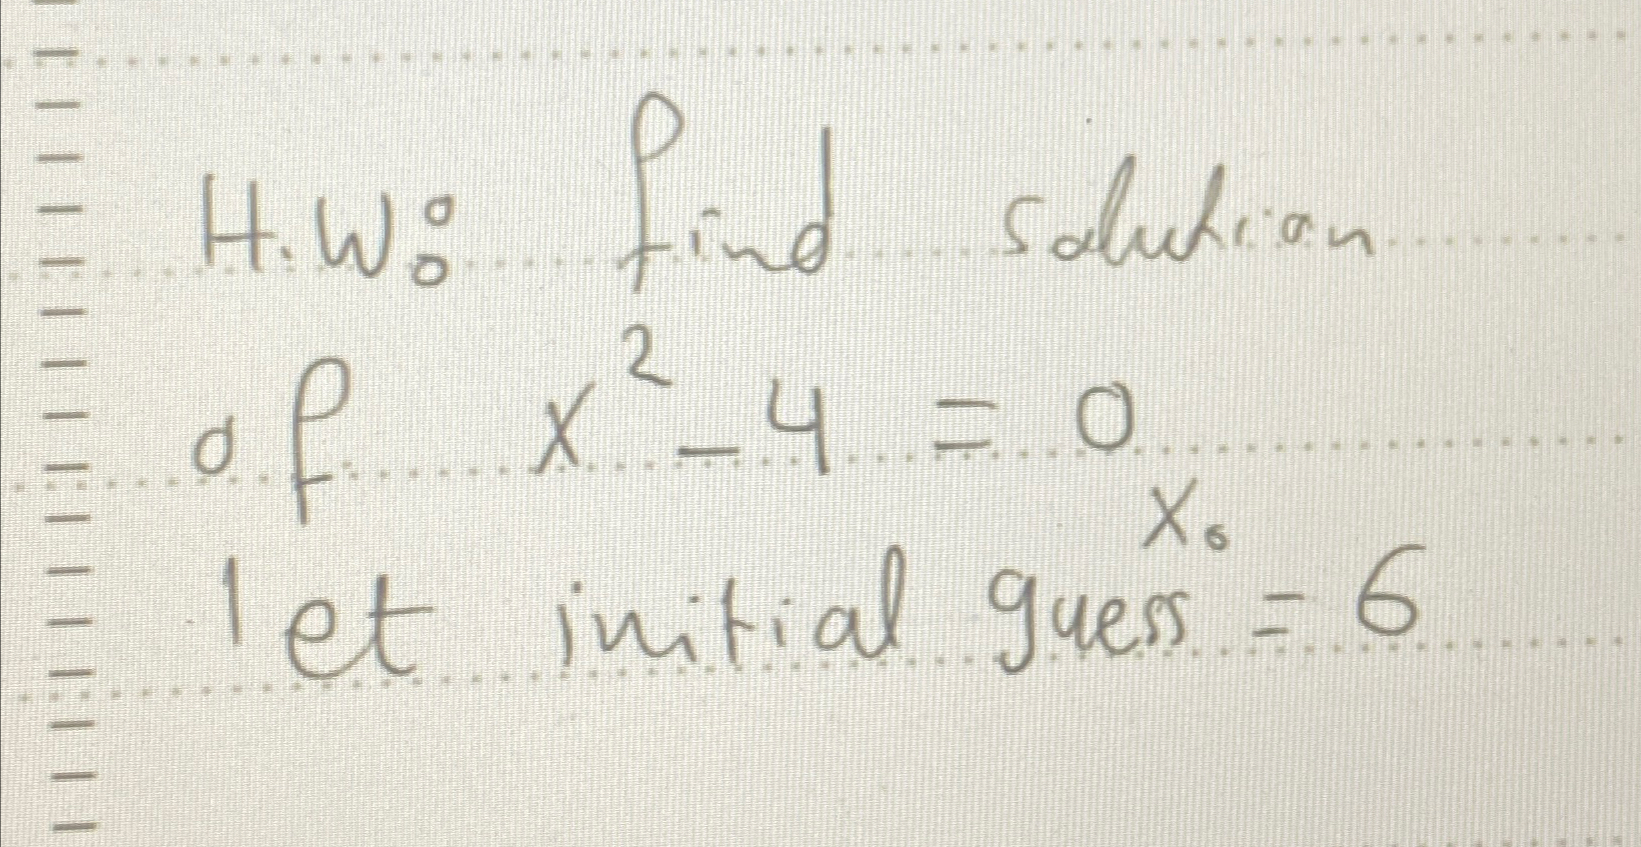 H.W: find solution
of x² - 4 = 0
x₀
let initial guess = 6